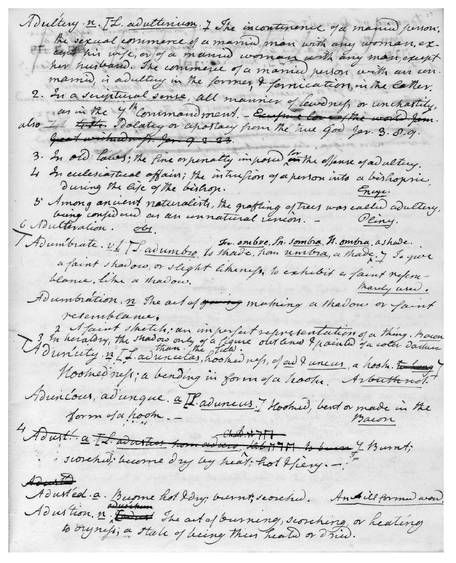 Adultery. n. [L. adulterium.] The incontinence of a married person;
the sexual commerce of a married man with any woman, ex-
cept his wife, or of a married woman with any man, except
her husband. The commerce of a married person with an un-
married is adultery in the former & fornication, in the latter.
2. In a scriptural sense, all manner of lewdness or unchastity,
as in the 7th Commandment. –
also Idolatry or apostasy from the true God Jer. 3. 8. 9.
3. In old laws; the fine or penalty imposed for the offense of adultery.
4 In ecclesiastical affairs; the intrusion of a person into a bishopric,
during the life of the bishop. Encyc.
5 Among ancient naturalists, the grafting of trees was called adultery,
being considered as an unnatural union. – Pliny.
6 Adulteration. obs.
Adumbrate. v.t. [L. adumbro, to shade, from umbra, a shade,
Fr. ombre, Sp. sombra, It. ombra, a shade.] To give
a faint shadow, or slight likeness; to exhibit a faint resem-
blance, like a shadow. used.
Adumbration. n The act of making a shadow or faint
resemblance.
2 A faint sketch; an imperfect representation of a thing. Bacon
3 In heraldry, the shadow only of a figure outlined & painted of a color darker
than the field.
Aduncity. n. [L. aduncitas, hookedness, of ad & uncus, a hook.]
Hookedness; a bending in form of a hook. Arbuthnot.
Aduncous, adunque. a [L. aduncus.] Hooked, bent or made in the
form of a hook. – Bacon
4
Adust. a Burnt;
scorched; become dry by heat; hot & fiery. –
Adust
Adusted. a. Become hot & dry; burnt; scorched. An ill formed word.
Adustion. n. The act of burning, scorching, or heating
to dryness; a state of being thus heated or dried.